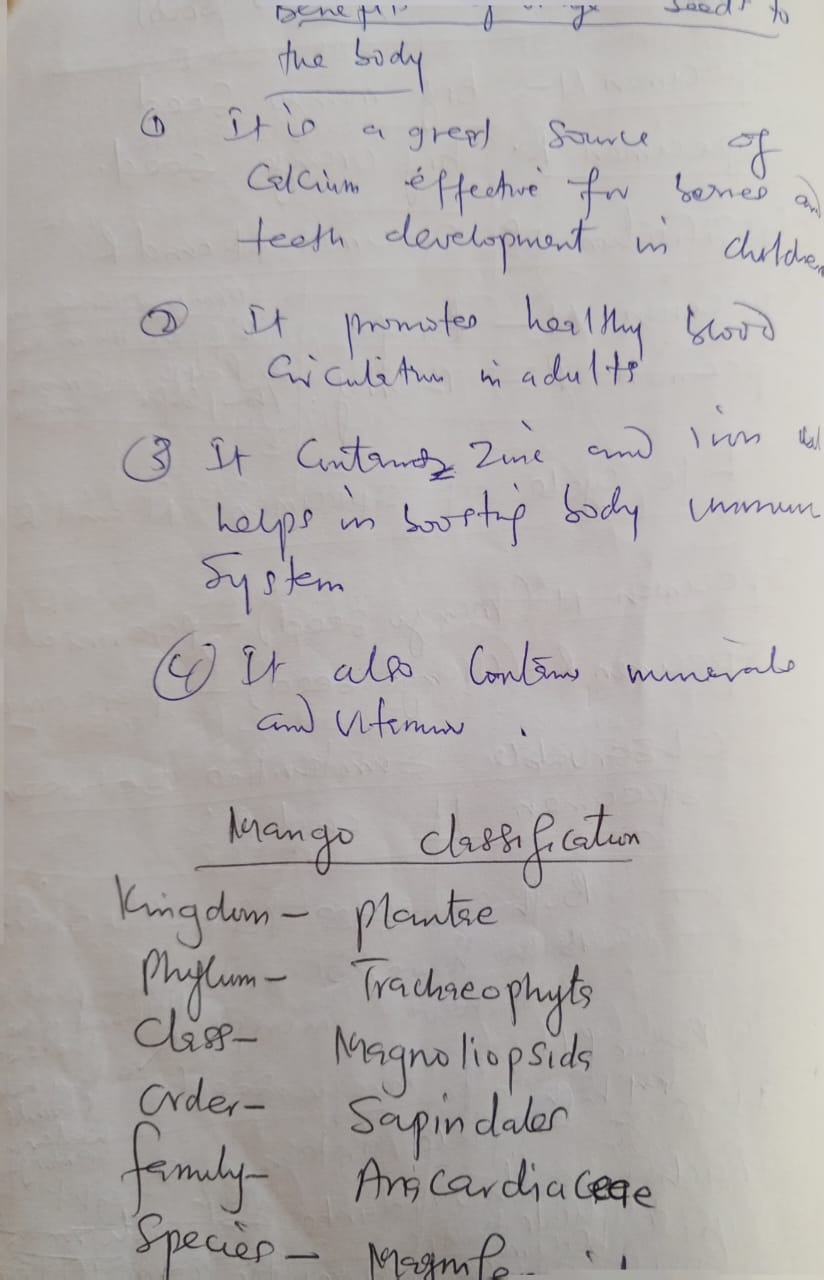 Benefits of mango seeds to
the body
① It is a great source of
Calcium effective for bones and
teeth development in children
② It promotes healthy blood
Circulation in adults
③ It Contains Zinc and iron
helps in boosting body immune
System
④ It also Contains minerals
and vitamins .
Mango classification
Kingdom - plantae
Phylum - Trachaeophyta
Class - Magnoliopsida
Order - Sapindales
family - Anacardiaceae
Species -